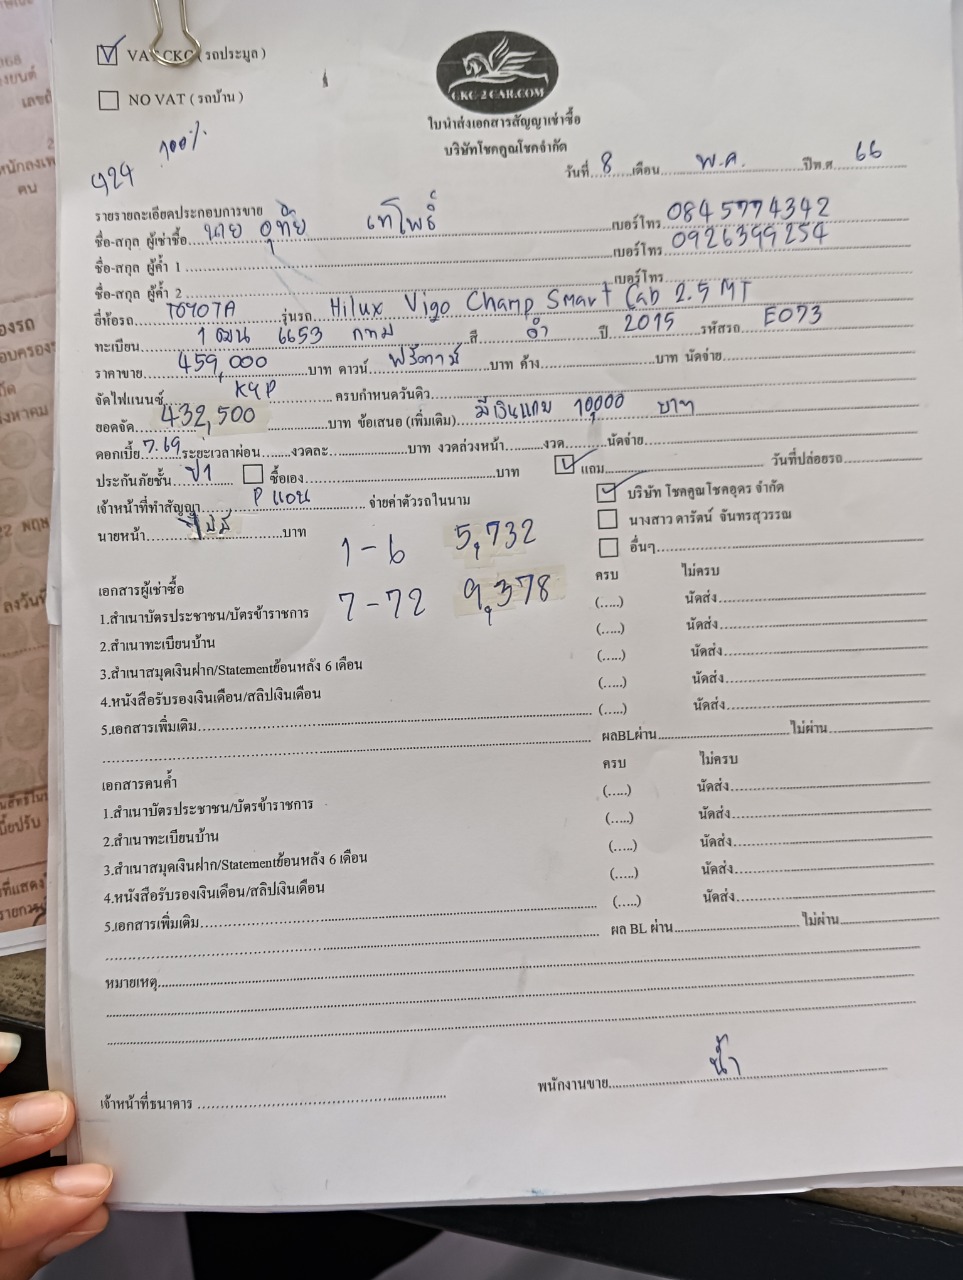 VAT CKC ( รถประมูล )
NO VAT ( รถบ้าน )
CKC-2CAR.COM
ใบนำส่งเอกสารสัญญาเช่าซื้อ
บริษัทโชคคูณโชคจำกัด
100%
924
วันที่ 8 เดือน พ.ค. ปีพ.ศ. 66
รายรายละเอียดประกอบการขาย
ชื่อ-สกุล ผู้เช่าซื้อ นาย อุทัย เทโพธิ์ เบอร์โทร 0845774342
ชื่อ-สกุล ผู้ค้ำ 1 เบอร์โทร 0926399254
ชื่อ-สกุล ผู้ค้ำ 2 เบอร์โทร
ยี่ห้อรถ TOYOTA รุ่นรถ Hilux Vigo Champ Smart Cab 2.5 MT
ทะเบียน 1ฒน 6653 กทม สี ดำ ปี 2015 รหัสรถ E073
ราคาขาย 459,000 บาท ดาวน์ ฟรีดาวน์ บาท ค้าง บาท นัดจ่าย
จัดไฟแนนซ์ KKP ครบกำหนดวันดิว
ยอดจัด 432,500 บาท ข้อเสนอ (เพิ่มเติม) มีเงินแถม 10,000 บาท
ดอกเบี้ย 7.69 ระยะเวลาผ่อน งวดละ บาท งวดล่วงหน้า งวด นัดจ่าย
ประกันภัยชั้น ป1 ซื้อเอง บาท แถม วันที่ปล่อยรถ
เจ้าหน้าที่ทำสัญญา P แอน จ่ายค่าตัวรถในนาม บริษัท โชคคูณโชคอุดร จำกัด
นายหน้า ไม่มี บาท นางสาว ดารัตน์ จันทรสุวรรณ
อื่นๆ
1 - 6 5,732
7 - 72 9,378
เอกสารผู้เช่าซื้อ ครบ ไม่ครบ
1.สำเนาบัตรประชาชน/บัตรข้าราชการ (.....) นัดส่ง
2.สำเนาทะเบียนบ้าน (.....) นัดส่ง
3.สำเนาสมุดเงินฝาก/Statementย้อนหลัง 6 เดือน (.....) นัดส่ง
4.หนังสือรับรองเงินเดือน/สลิปเงินเดือน (.....) นัดส่ง
5.เอกสารเพิ่มเติม (.....) นัดส่ง
ผลBLผ่าน ไม่ผ่าน
เอกสารคนค้ำ ครบ ไม่ครบ
1.สำเนาบัตรประชาชน/บัตรข้าราชการ (.....) นัดส่ง
2.สำเนาทะเบียนบ้าน (.....) นัดส่ง
3.สำเนาสมุดเงินฝาก/Statementย้อนหลัง 6 เดือน (.....) นัดส่ง
4.หนังสือรับรองเงินเดือน/สลิปเงินเดือน (.....) นัดส่ง
5.เอกสารเพิ่มเติม (.....) นัดส่ง
ผล BL ผ่าน ไม่ผ่าน
หมายเหตุ
เจ้าหน้าที่ธนาคาร พนักงานขาย น้ำ